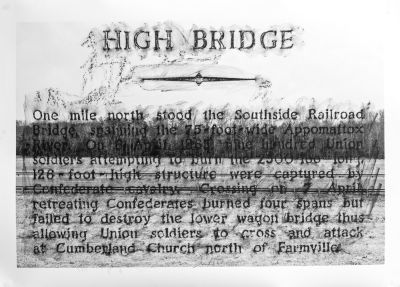 HIGH BRIDGE
One mile north stood the Southside Railroad
Bridge, spanning the 75-foot-wide Appomattox
River. On 6 April 1865, nine hundred Union
soldiers attempting to burn the 2500 foot long,
126-foot-high structure were captured by
Confederate cavalry. Crossing on 7 April,
retreating Confederates burned four spans but
failed to destroy the lower wagon bridge thus
allowing Union soldiers to cross and attack
at Cumberland Church north of Farmville.